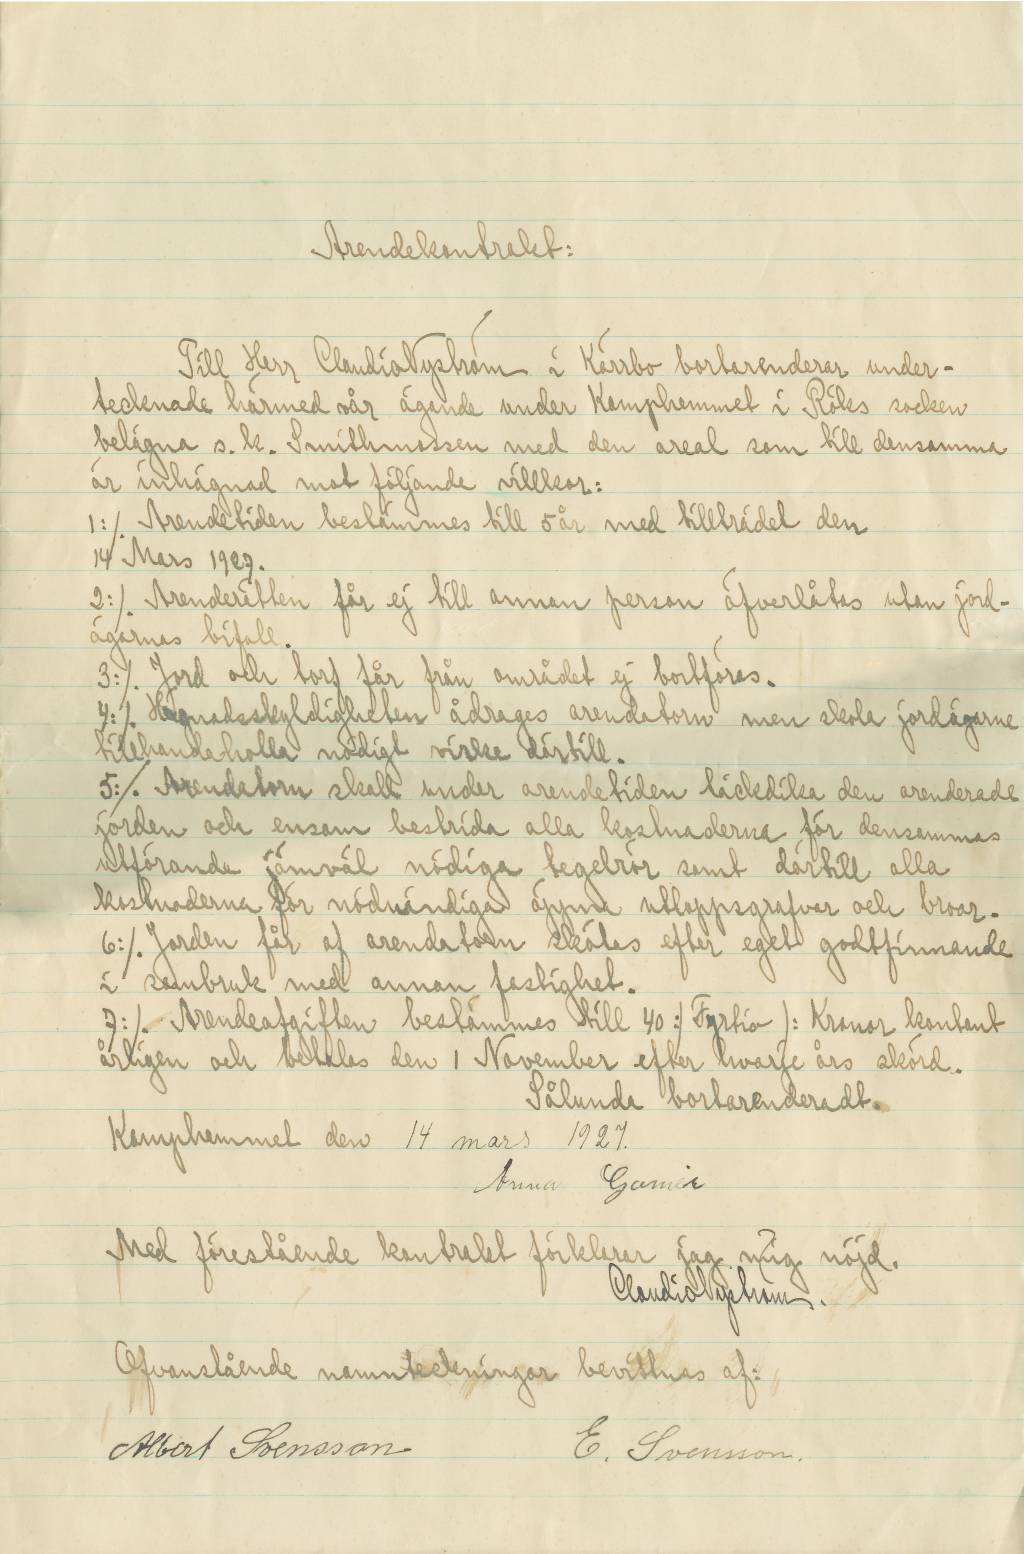 Arendekontrakt:
Till Herr Claudio Nyström i Kärrbo bortarenderar under-
tecknade härmed vår ägande under Kamphemmet i Röks socken
belägna s. k. Smithmossen med den areal som till densamma
är inhägnad mot följande villkor:
1:/. Arendetiden bestämmes till 5 år med tillträdet den
14 Mars 1927.
2:/. Arenderätten får ej till annan person öfverlåtas utan jord-
ägarnas bifall.
3:/. Jord och torf får från området ej bortföras.
4:/. Hägnadsskyldigheten ådrages arendatorn men skola jordägarne
tillhandahålla nödigt virke därtill.
5:/. Arendatorn skall under arendetiden täckdika den arenderade
jorden och ensam bestrida alla kostnaderna för densammas
utförande jämväl nödiga tegelrör samt därtill alla
kostnaderna för nödvändiga öppna utloppsgrafvar och broar.
6:/. Jorden får af arendatorn skötas efter eget godtfinnande
i sambruk med annan fastighet.
7:/. Arendeafgiften bestämmes till 40 :/ Fyrtio /: Kronor kontant
årligen och betalas den 1 November efter hvarje års skörd.
Sålunda bortarenderadt.
Kamphemmet den 14 mars 1927.
Anna
Med förestående kontrakt förklarar jag mig nöjd.
Claudio Nyström.
Ofvanstående namnteckningar bevittnas af:
Albert Svensson E. Svensson.